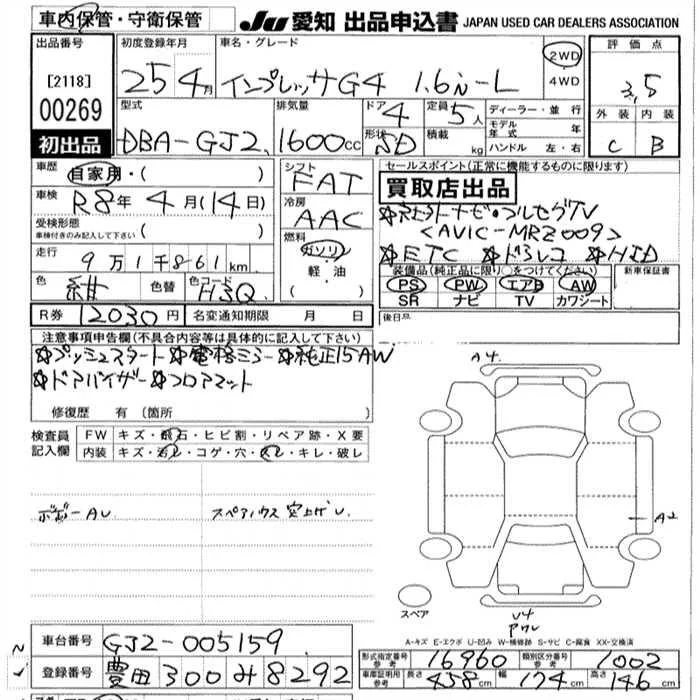 車内保管・守衛保管
JU 愛知 出品申込書 JAPAN USED CAR DEALERS ASSOCIATION
出品番号 初度登録年月 車名・グレード 評価点
[2118] 25年4月 インプレッサG4 1.6i-L 2WD 3.5
4WD
00269 型式 排気量 ドア 定員 ディーラー・並行 外装 内装
4 5人 モデル年式 年
初出品 DBA-GJ2 1600cc 形状 SD 積載 kg ハンドル 左・右 C B
車歴 自家用・( ) シフト FAT セールスポイント(正常に機能するものに限ります)
買取店出品
車検 R8年4月(14日) 冷房 AAC
☆社外ナビ・フルセグTV
受検形態 車検付きのみ記入して下さい ( ) 燃料 <AVIC-MRZ009>
走行 9万1千861km ガソリン ☆ETC ☆ドラレコ ☆HID
軽油 装備品(純正品に限り○をつけてください) 新車保証書
( ) PS PW エアB AW
色 紺 色替 色コード H3Q SR ナビ TV カワシート
R券 12030円 名変通知期限 月 日 後日品
注意事項申告欄(不具合内容等は具体的に記入して下さい)
☆プッシュスタート ☆電格ミラー ☆純正15AW
☆ドアバイザー ☆フロアマット
修復歴 有(箇所 )
検査員 FW キズ・飛石・ヒビ割・リペア跡・X要
記入欄 内装 キズ・汚レ・コゲ・穴・スレ・キレ・破レ
A4
A2
スペアハウス 突上げU
スペア
U4
A-キズ E-エクボ U-凹み W-補修跡 S-サビ C-腐食 XX-交換済
車台番号 GJ2-005159 形式指定番号 参考 16960 類別区分番号 参考 1002
登録番号 豊田 300 み 8292 車庫証明用 参考 長さ 458cm 幅 174cm 高さ 146cm